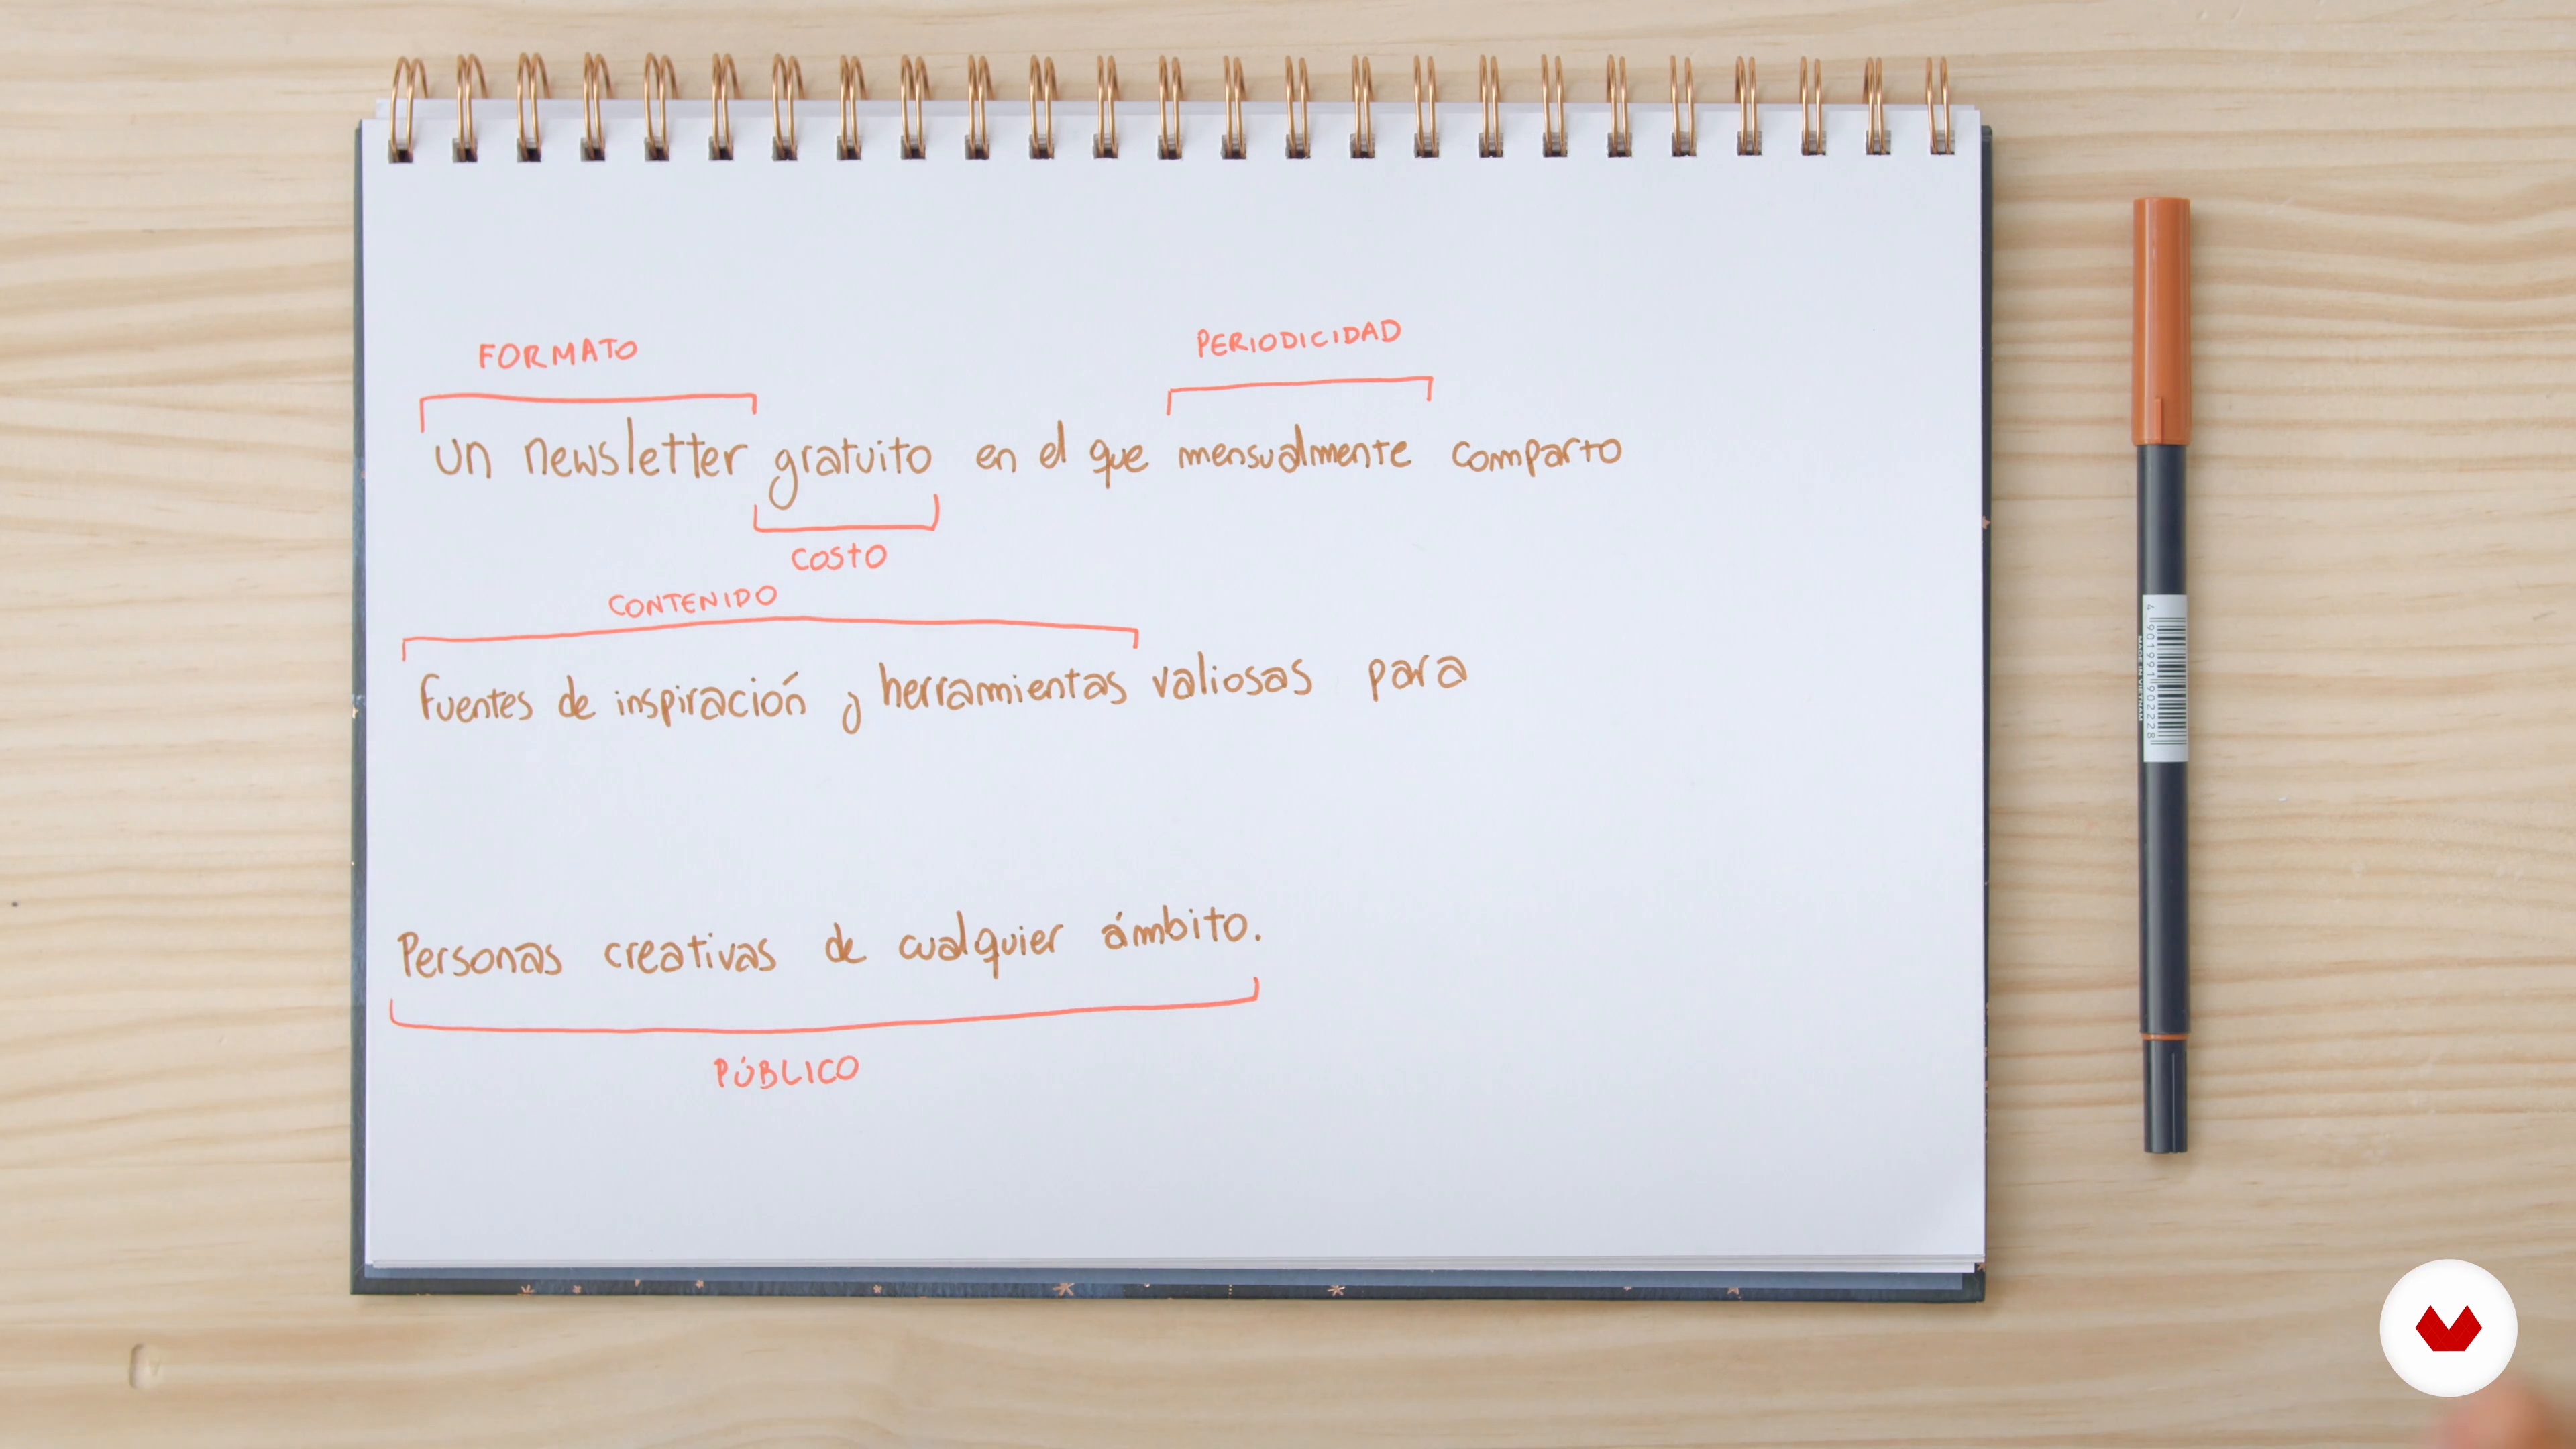 FORMATO
PERIODICIDAD
un newsletter gratuito en el que mensualmente comparto
COSTO
CONTENIDO
fuentes de inspiración y herramientas valiosas para
Personas creativas de cualquier ámbito.
PÚBLICO
4 901991 902228